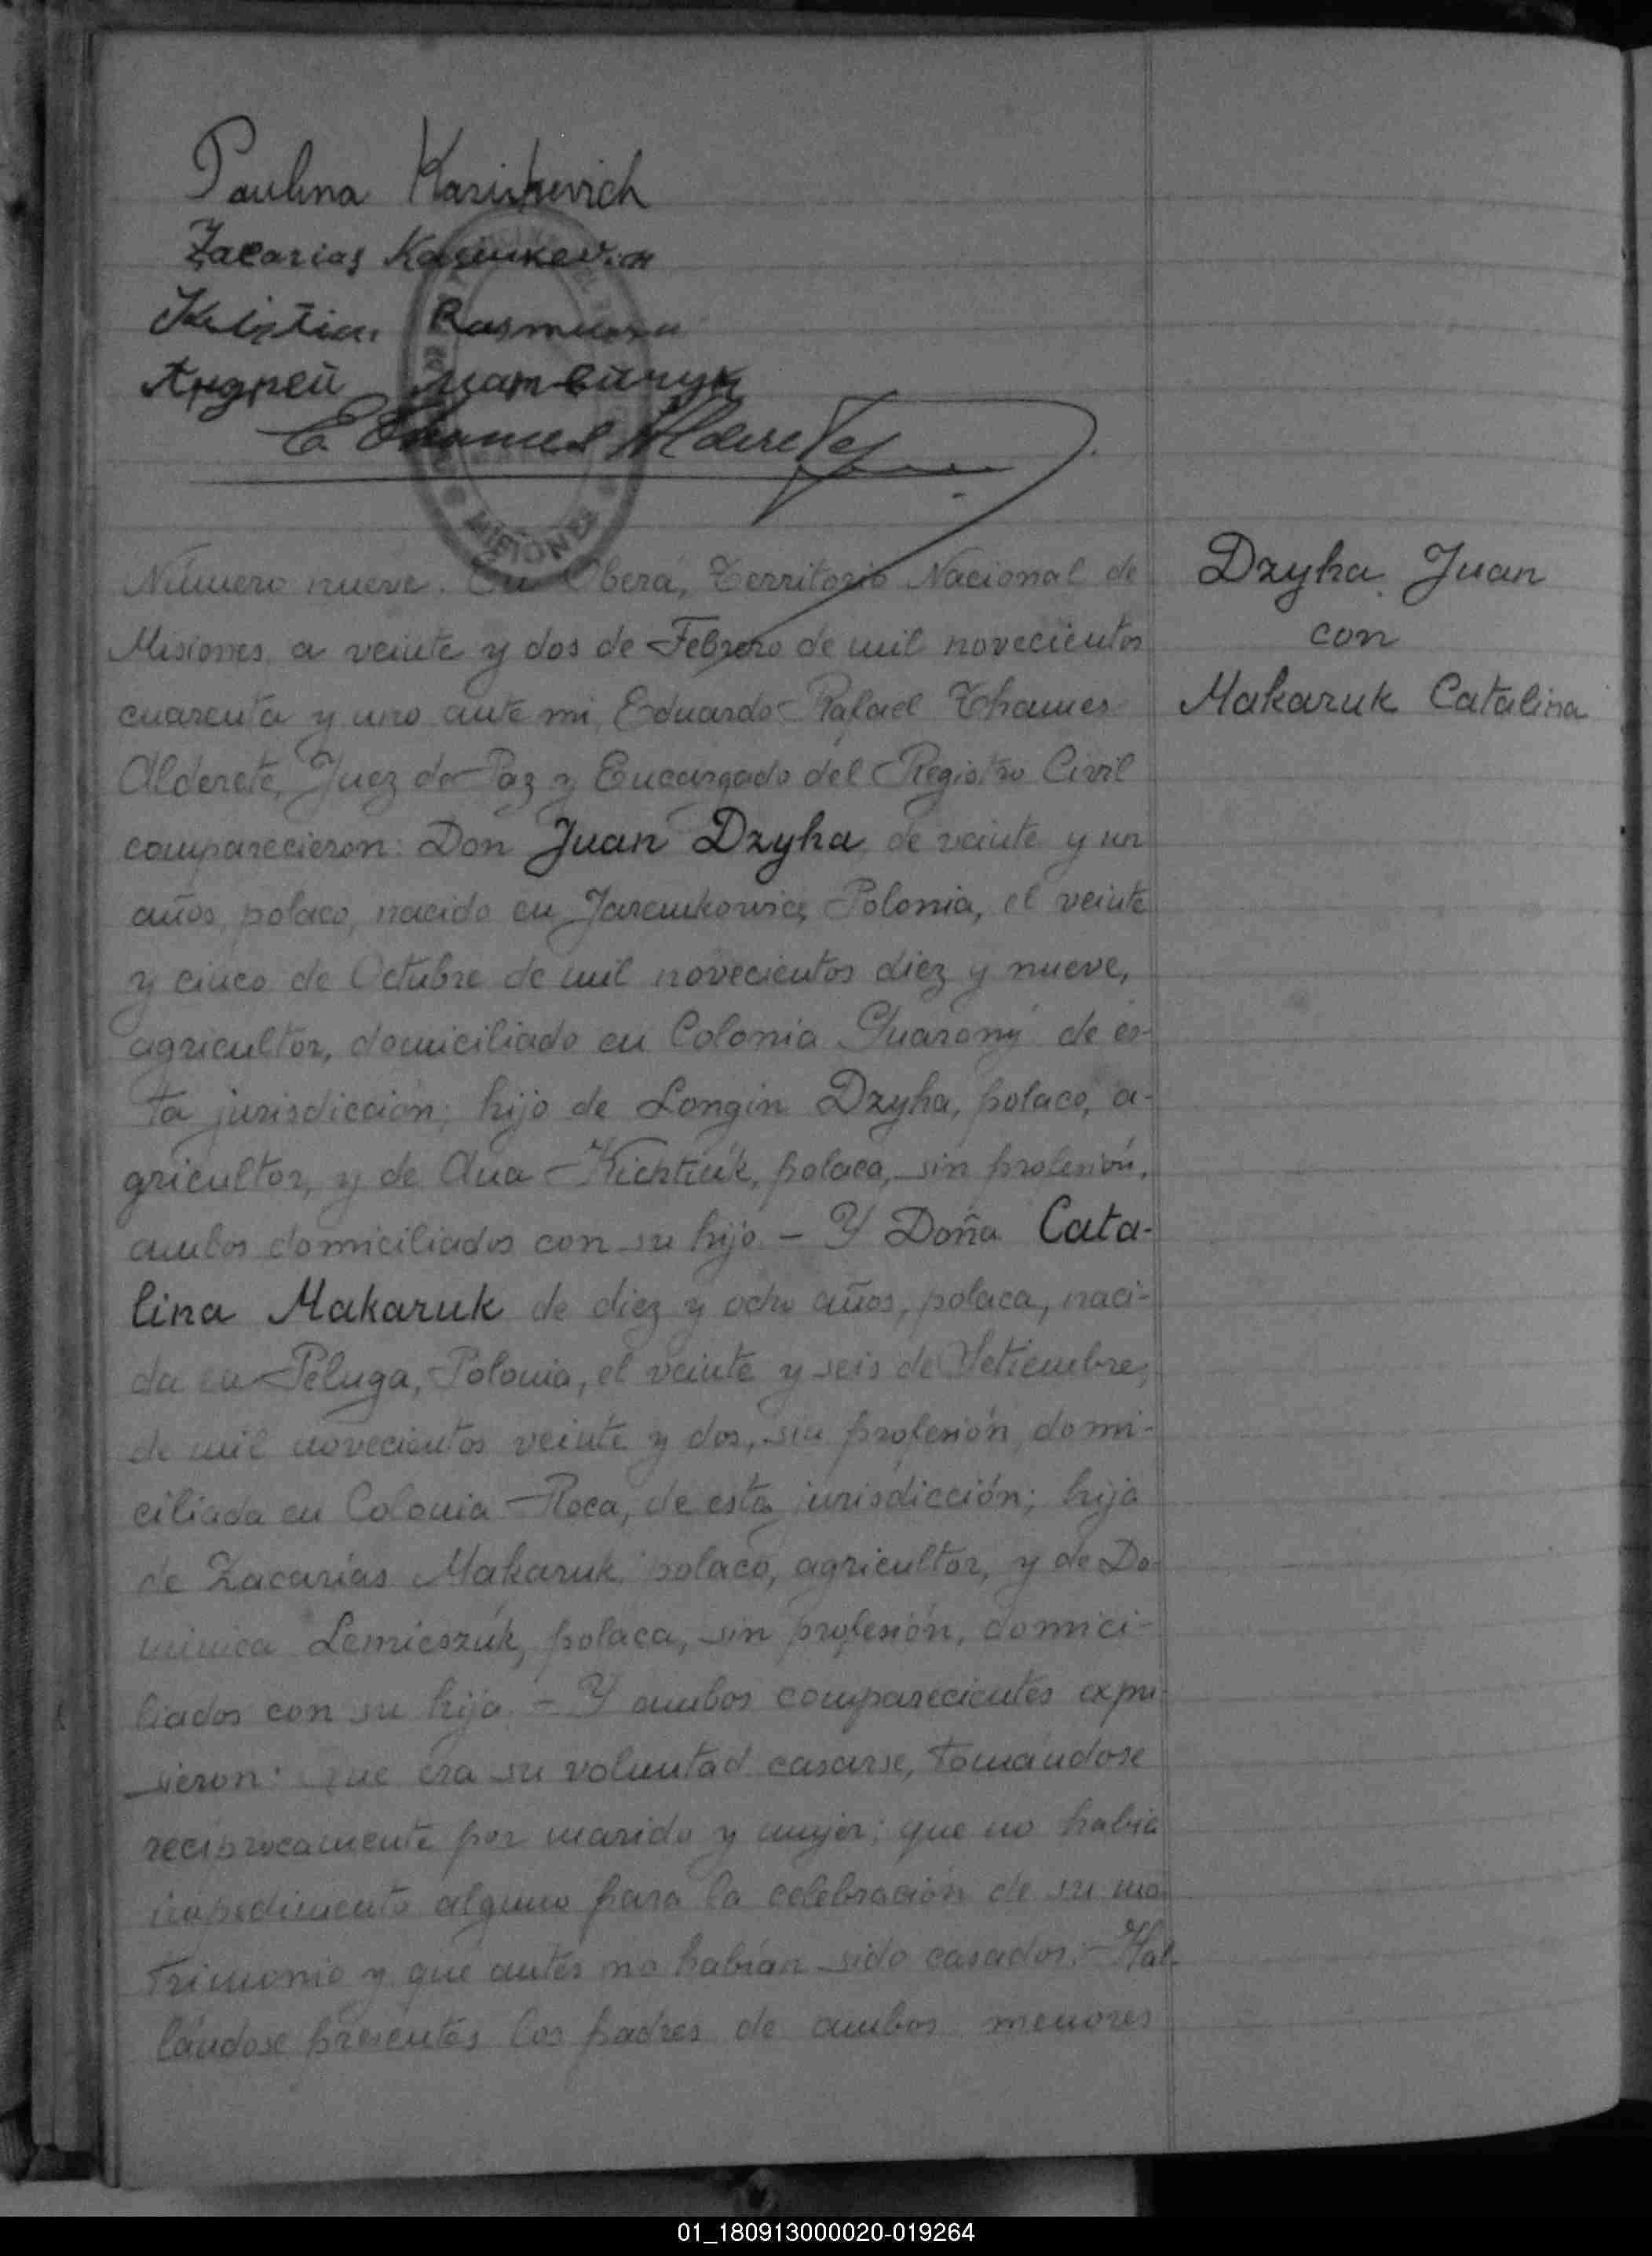 Paulina
Zacarias
Андрей
E Thames Alderete
MISIONES
Número nueve. En Oberá, Territorio Nacional de
Misiones, a veinte y dos de Febrero de mil novecientos
cuarenta y uno ante mi, Eduardo Rafael Thames
Alderete, Juez de Paz y Encargado del Registro Civil
comparecieron: Don Juan Dzyha de veinte y un
años, polaco, nacido en Polonia, el veinte
y cinco de Octubre de mil novecientos diez y nueve,
agricultor, domiciliado en Colonia Guarany de es-
ta jurisdicción; hijo de Longin Dzyha, polaco, a-
gricultor, y de Ana polaca, sin profesión,
ambos domiciliados con su hijo. - Y Doña Cata-
lina Makaruk de diez y ocho años, polaca, naci-
da en Peluga, Polonia, el veinte y seis de Setiembre,
de mil novecientos veinte y dos, sin profesión, domi-
ciliada en Colonia Roca, de esta jurisdicción; hija
de Zacarías Makaruk, polaco, agricultor, y de Do-
minica Lemieszúk, polaca, sin profesión, domici-
liados con su hija. - Y ambos comparecientes expu-
sieron: que era su voluntad casarse, tomándose
recíprocamente por marido y mujer; que no había
impedimento alguno para la celebración de su ma-
trimonio y que antes no habían sido casados. - Hal-
lándose presentes los padres de ambos menores
Dzyha Juan
con
Makaruk Catalina
01_180913000020-019264